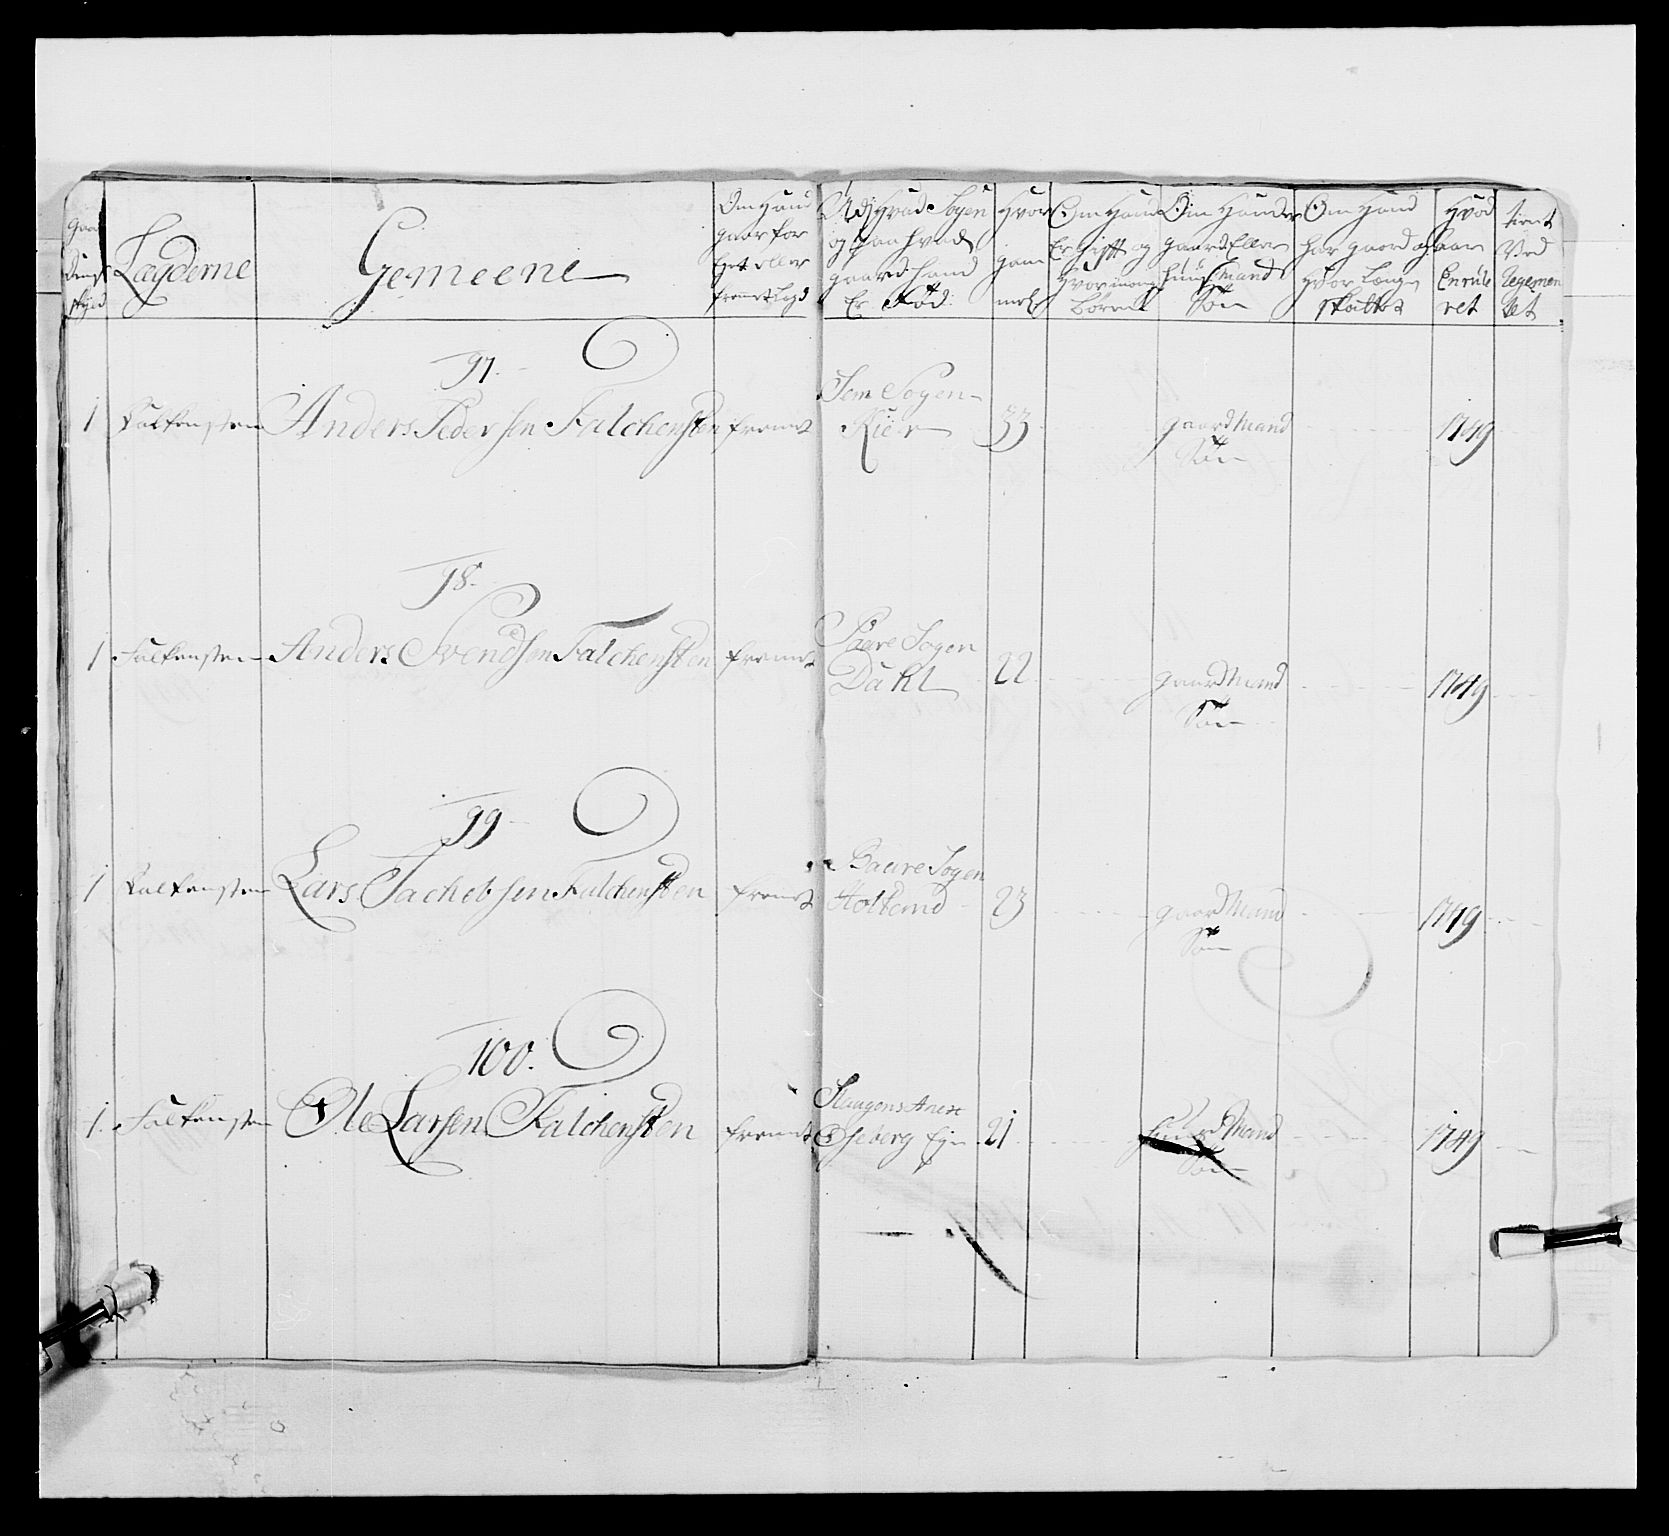 Lagderne
Gemeene
Om Hand
gaar for
Eget eller
fremt Lagd
Udj Hvad Sogen
og paa hvad
gaard hand
Er Fød
Hvor
gam
mel
Om Hand
Er gift og
Hvor mange
Børn
Om Hand er
gaard Eller
huusmands
Søn
Om Hand
har gaard og
Hvor Længe
Hvad
Aar
Enrule
ret
tient
Ved
Regemen
tet
97.
1 Falkensten Anders Pedersen Falchensten fremt
Sem Sogen
Kier
33
gaardMand
Søn
1749
98.
1 Falkensten Anders Svendsen Falchensten fremt
Baare Sogen
Dahl
22
gaardMand
Søn
1749
99
1 Falkensten Lars Jachobsen Falchensten fremt
Baare Sogen
23
gaardMand
Søn
1749
100.
1. Falkensten Ole Larsen Falchensten fremt
Slaugens Anex
Oseberg Eje
21
Mand
Søn
1749